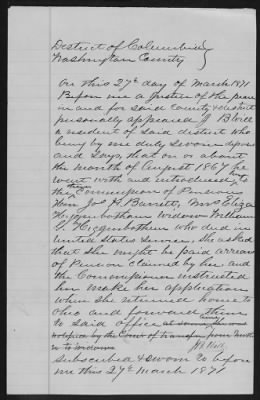 District of Columbia
Washington County
On this 27th day of March 1871
Before me a Justice of the peace
in and for said County & district
personally appeared J Blood
a resident of said district who
being by me duly sworn deposes
and says, that on or about
the month of August 1867 he
went with and introduced to
the then Commissioner of Pensions
Hon Jos H. Barrett, Mrs Eliza
Higginbotham widow William
S. Higginbotham who died in
United States Service, She asked
that She might be paid arrears
of Pension claimed by her and
the Commissioner instructed
her make her application
when she returned home to
Ohio and forward them
to said office
Subscribed & sworn to before
me this 27th March 1871